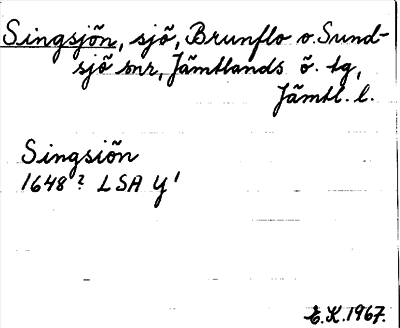 Singsjön, sjö, Brunflo o. Sund-
sjö snr, Jämtlands ö. tg,
Jämtl. l.
Singsiön
1648? LSA Y¹
E.K. 1967.